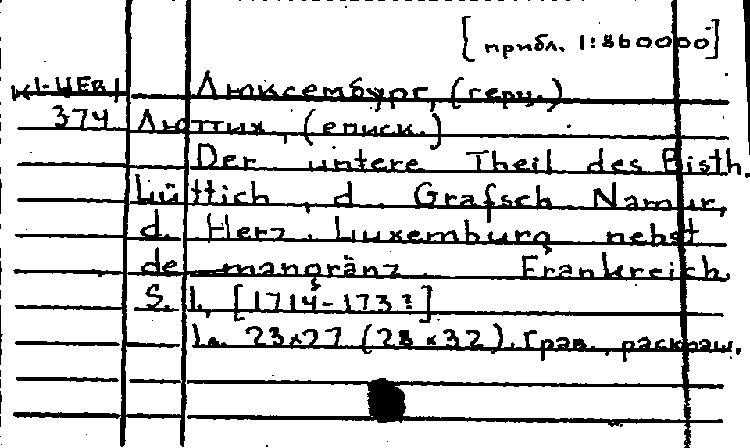 [прибл. 1:860000]
К1-ЦЕВ1 Люксембург, (герц.)
374 Люттих, (еписк.)
Der untere Theil des Bisth.
Lüttich, d. Grafsch. Namur,
d. Herz. Luxemburg nebst
de mangränz. Frankreich.
S. l., [1714-173?]
1 л. 23×27 (28×32). Грав., раскраш.